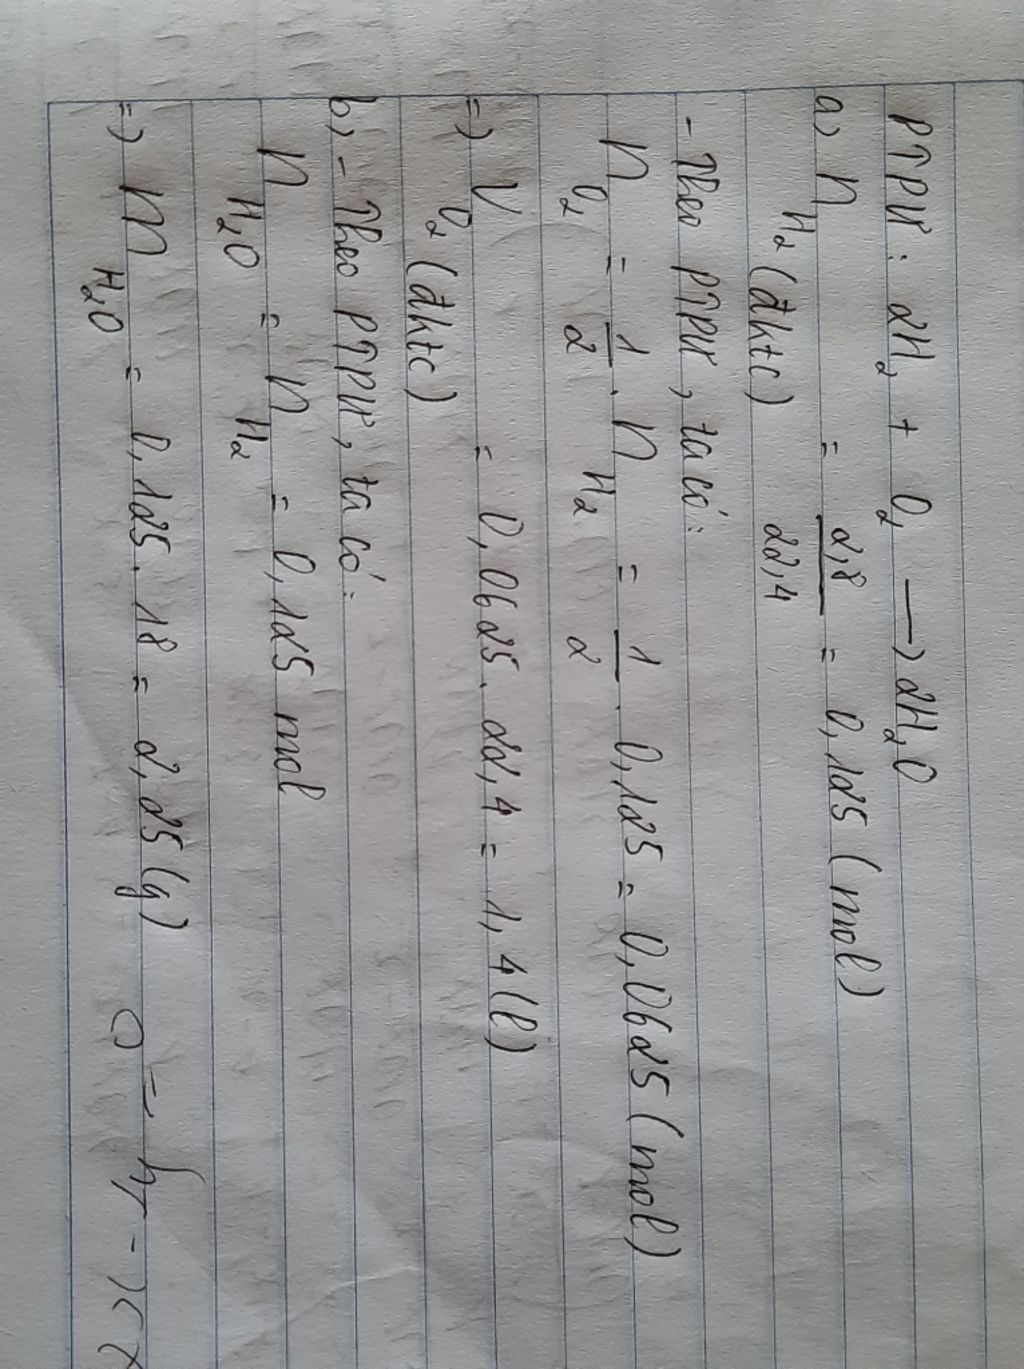 PTPƯ: 2H2 + O2 → 2H2O
a, nH2 (đktc) = 2,8/22,4 = 0,125 (mol)
- Theo PTPƯ, ta có:
nO2 = 1/2 . nH2 = 1/2 . 0,125 = 0,0625 (mol)
=> VO2 (đktc) = 0,0625 . 22,4 = 1,4 (l)
b, - Theo PTPƯ, ta có:
nH2O = nH2 = 0,125 mol
=> mH2O = 0,125 . 18 = 2,25 (g)